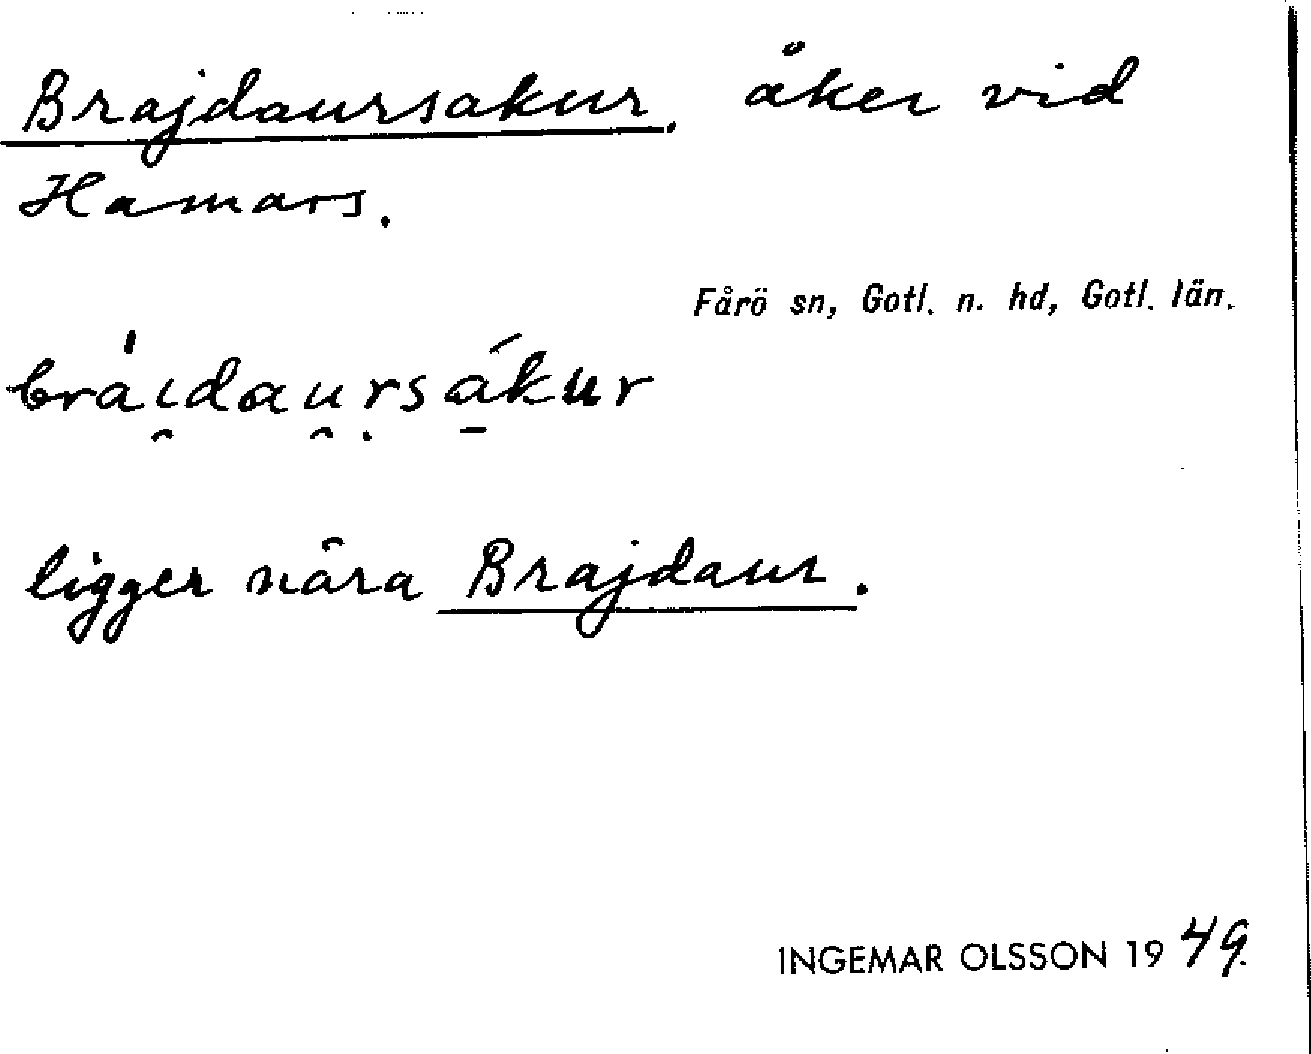 Brajdaursakur, åker vid
Hamars.
Fårö sn, Gotl. n. hd, Gotl. län.
brái̯dau̯ṛsá̱kur
ligger nära Brajdaur.
INGEMAR OLSSON 1949.